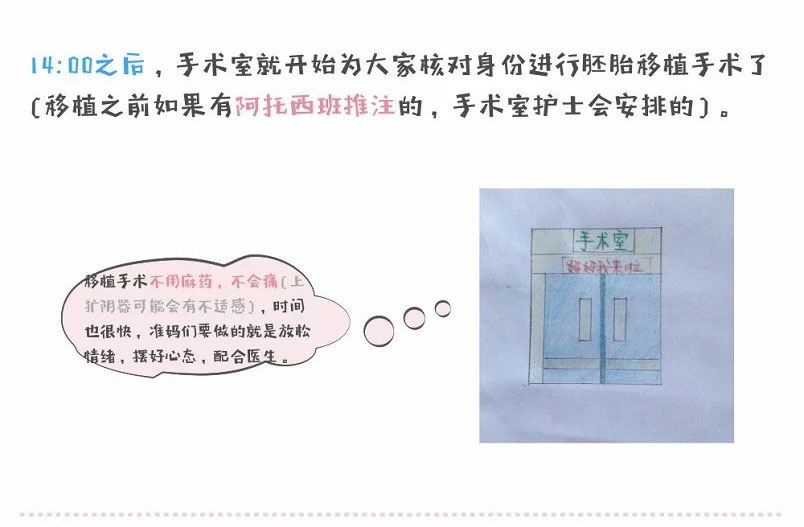 14:00之后，手术室就开始为大家核对身份进行胚胎移植手术了
(移植之前如果有阿托西班推注的，手术室护士会安排的)。
移植手术不用麻药，不会痛(上
扩阴器可能会有不适感)，时间
也很快，准妈们要做的就是放松
情绪，摆好心态，配合医生。
手术室
好好我来啦